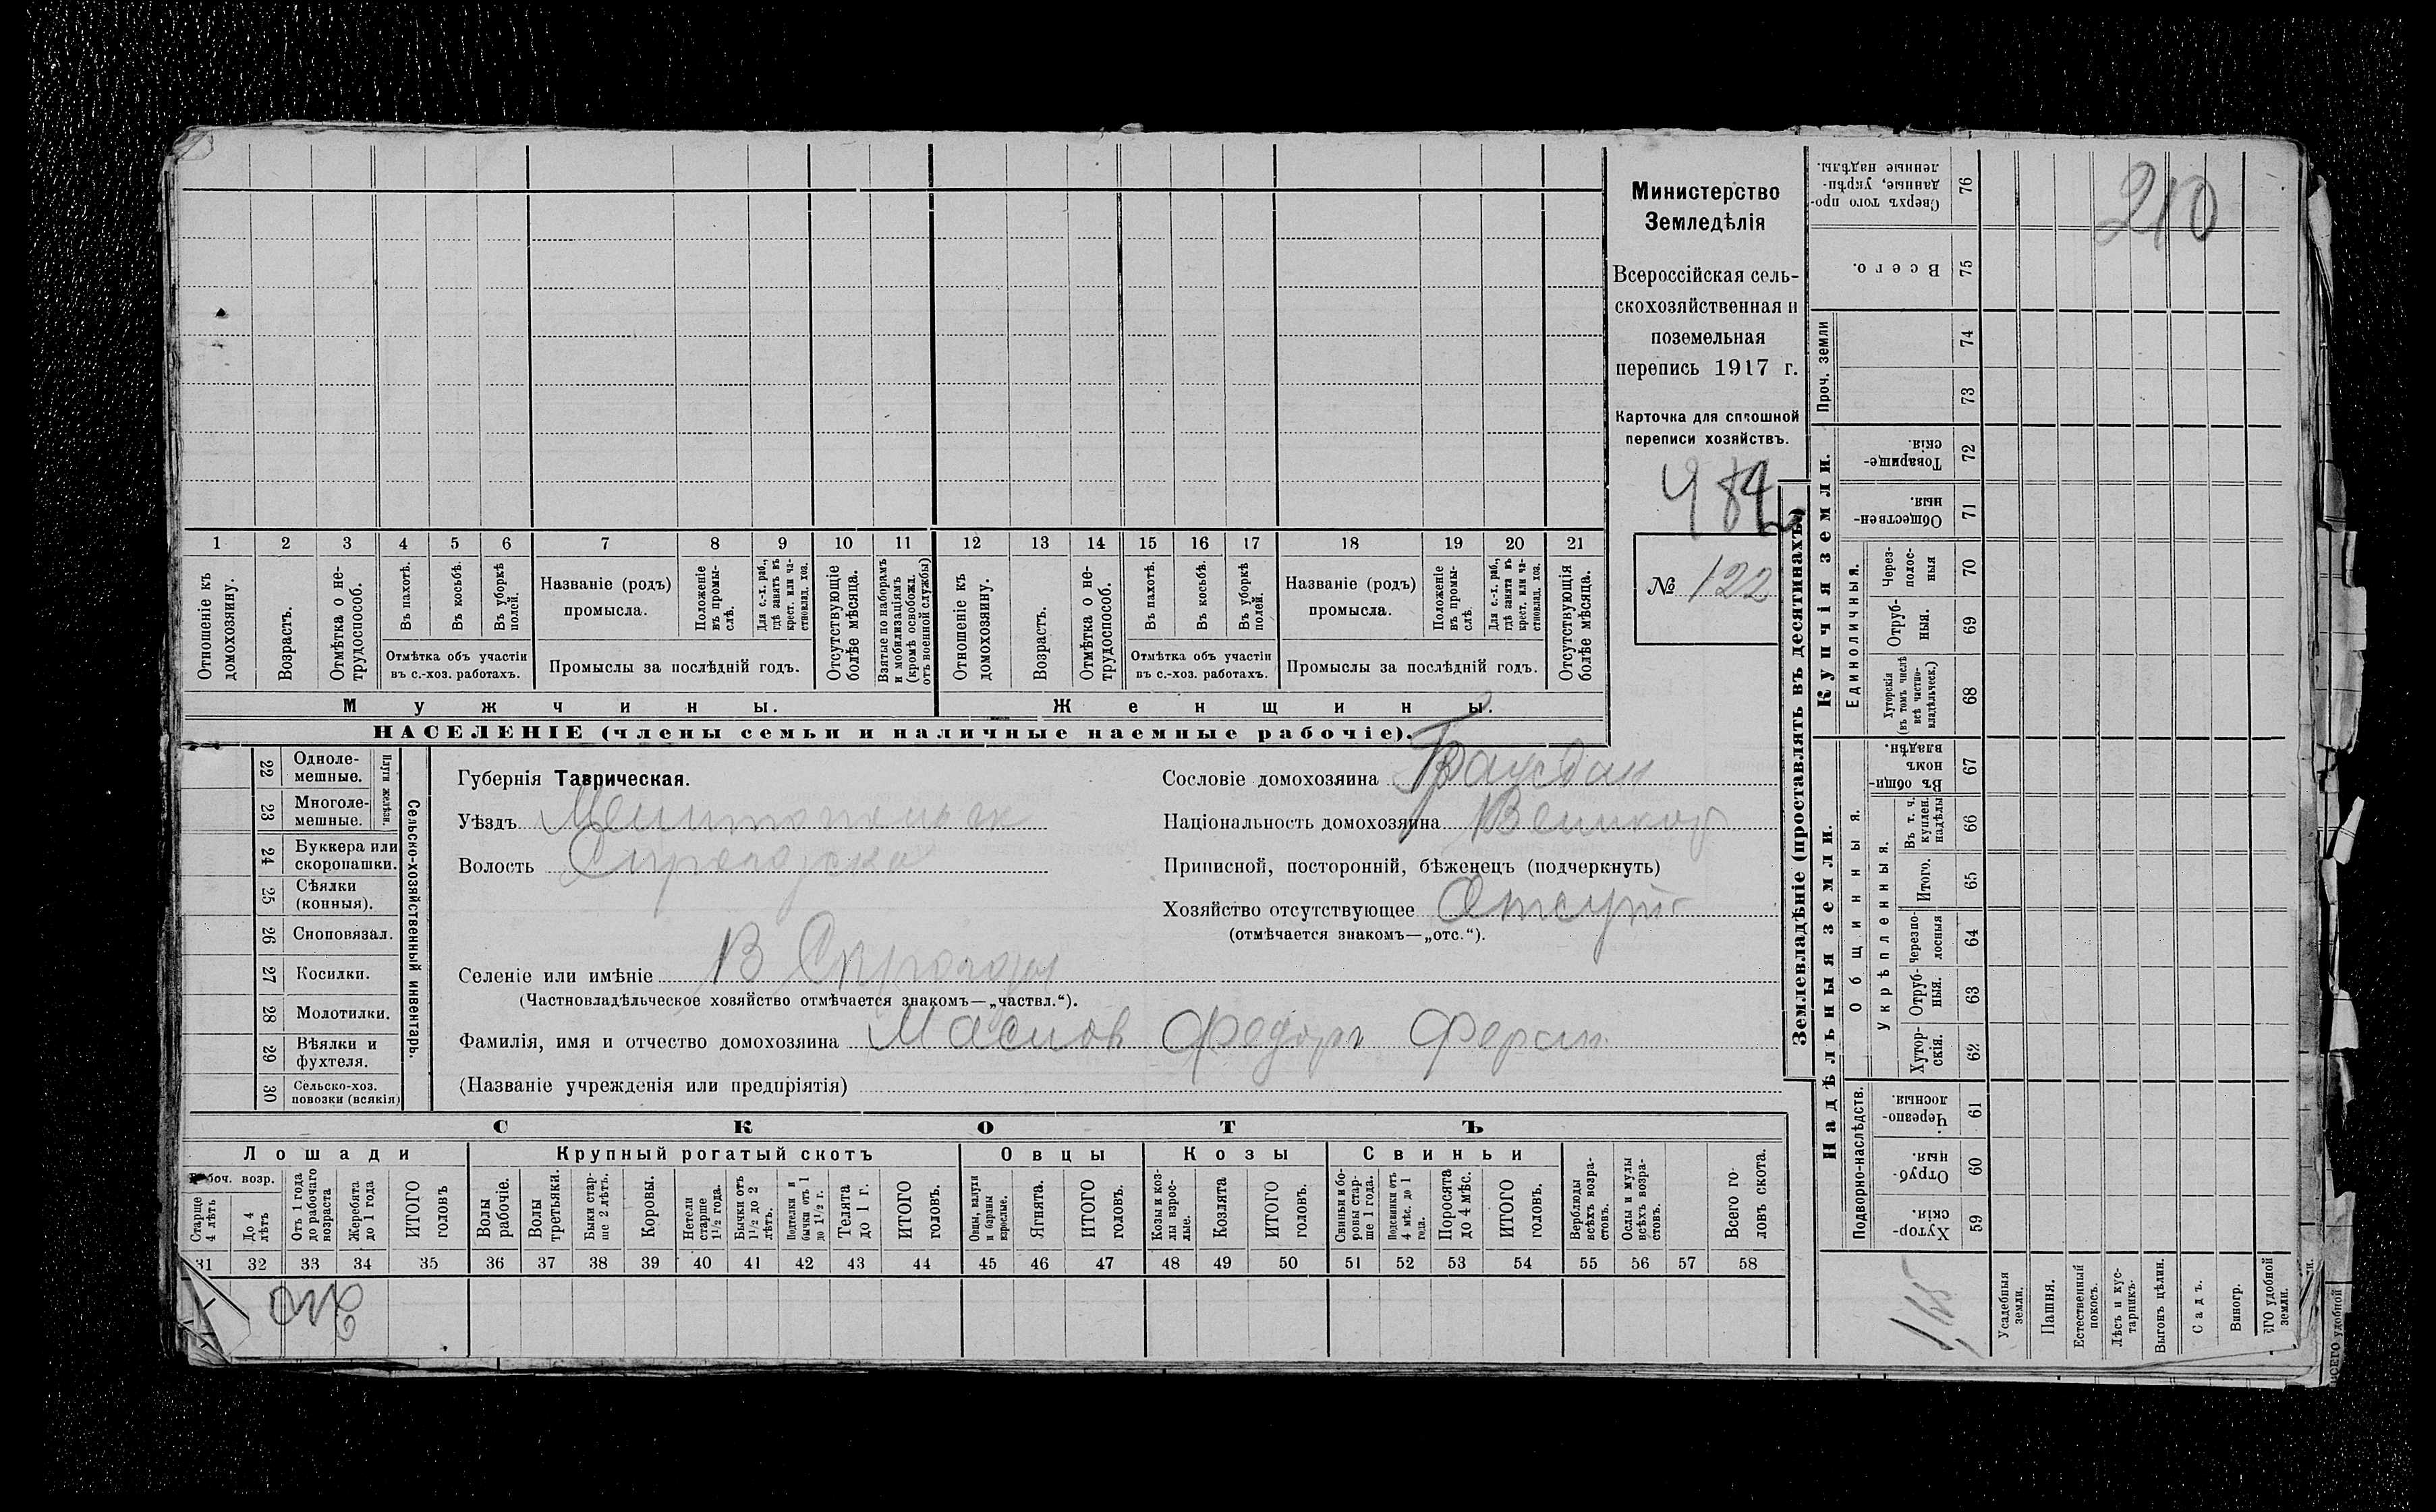 Министерство
Земледѣлія
Всероссійская сель-
скохозяйственная и
поземельная
перепись 1917 г.
Карточка для сплошной
переписи хозяйствъ.
№ 122
210
1 2 3 4 5 6 7 8 9 10 11 12 13 14 15 16 17 18 19 20 21
Отношеніе къ домохозяину.
Возрастъ.
Отмѣтка о не-трудоспособ.
Въ пахотѣ.
Въ косьбѣ.
Въ уборкѣ полей.
Отмѣтка объ участіи
въ с.-хоз. работахъ.
Названіе (родъ)
промысла.
Положеніе въ промы-слѣ.
Для с.-х. раб., гдѣ занятъ въ крест. или ча-стновлад. хоз.
Промыслы за послѣдній годъ.
Отсутствующіе болѣе мѣсяца.
Взятые по наборамъ и мобилизаціямъ (кромѣ освобожд. отъ военной службы)
Отношеніе къ домохозяину.
Возрастъ.
Отмѣтка о не-трудоспособ.
Въ пахотѣ.
Въ косьбѣ.
Въ уборкѣ полей.
Отмѣтка объ участіи
въ с.-хоз. работахъ.
Названіе (родъ)
промысла.
Положеніе въ промы-слѣ.
Для с.-х. раб., гдѣ занята въ крест. или ча-стновлад. хоз.
Промыслы за послѣдній годъ.
Отсутствующія болѣе мѣсяца.
Мужчины. Женщины.
НАСЕЛЕНІЕ (члены семьи и наличные наемные рабочіе).
Сельско-хозяйственный инвентарь.
Плуги желѣзн.
22 Одноле-мешные.
23 Многоле-мешные.
24 Буккера или скоропашки.
25 Сѣялки (конныя).
26 Сноповязал.
27 Косилки.
28 Молотилки.
29 Вѣялки и фухтеля.
30 Сельско-хоз. повозки (всякія)
Губернія Таврическая.
Уѣздъ
Волость
Селеніе или имѣніе В
(Частновладѣльческое хозяйство отмѣчается знакомъ—„частвл.“).
Фамилія, имя и отчество домохозяина Маслов Федоръ
(Названіе учрежденія или предпріятія)
Сословіе домохозяина
Національность домохозяина Великор
Приписной, посторонній, бѣженецъ (подчеркнуть)
Хозяйство отсутствующее Отсут
(отмѣчается знакомъ—„отс.“).
СКОТЪ
Лошади Крупный рогатый скотъ Овцы Козы Свиньи
Рабоч. возр.
Старше 4 лѣтъ
До 4 лѣтъ
Отъ 1 года до рабочаго возраста
Жеребята до 1 года
ИТОГО головъ
Волы рабочіе.
Волы третьяки.
Быки стар-ше 2 лѣтъ.
Коровы.
Нетели старше 1½ года.
Бычки отъ 1½ до 2 лѣтъ.
Подтелки и бычки отъ 1 до 1½ г.
Телята до 1 г.
ИТОГО головъ.
Овцы, валухи и бараны взрослые.
Ягнята.
ИТОГО головъ.
Козы и коз-лы взрос-лые.
Козлята
ИТОГО головъ.
Свиньи и бо-ровы стар-ше 1 года.
Подсвинки отъ 4 мѣс. до 1 года.
Поросята до 4 мѣс.
ИТОГО головъ.
Верблюды всѣхъ возра-стовъ.
Ослы и мулы всѣхъ возра-стовъ.
Всего го-ловъ скота.
31 32 33 34 35 36 37 38 39 40 41 42 43 44 45 46 47 48 49 50 51 52 53 54 55 56 57 58
210
Землевладѣніе (проставлять въ десятинахъ)
Купчія земли.
Надѣльныя земли.
Сверхъ того про-данные, укрѣп-ленные надѣлы. 76
Всего. 75
Проч. земли
74
73
Товарище-скія. 72
Обществен-ныя. 71
Единоличныя.
Через-полос-ныя 70
Отруб-ныя. 69
Хуторскія (въ томъ числѣ всѣ частно-владѣльческ.) 68
Общинныя.
Въ общин-номъ владѣн. 67
Укрѣпленныя.
Въ т. ч. куплен. надѣлы 66
Итого. 65
Черезпо-лосныя 64
Отруб-ныя. 63
Хутор-скія. 62
Подворно-наслѣдств.
Черезпо-лосныя. 61
Отруб-ныя. 60
Хутор-скія. 59
Усадебныя земли.
Пашня.
Естественный покосъ.
Лѣсъ и кус-тарникъ.
Выгонъ цѣлин.
Садъ.
Виногр.